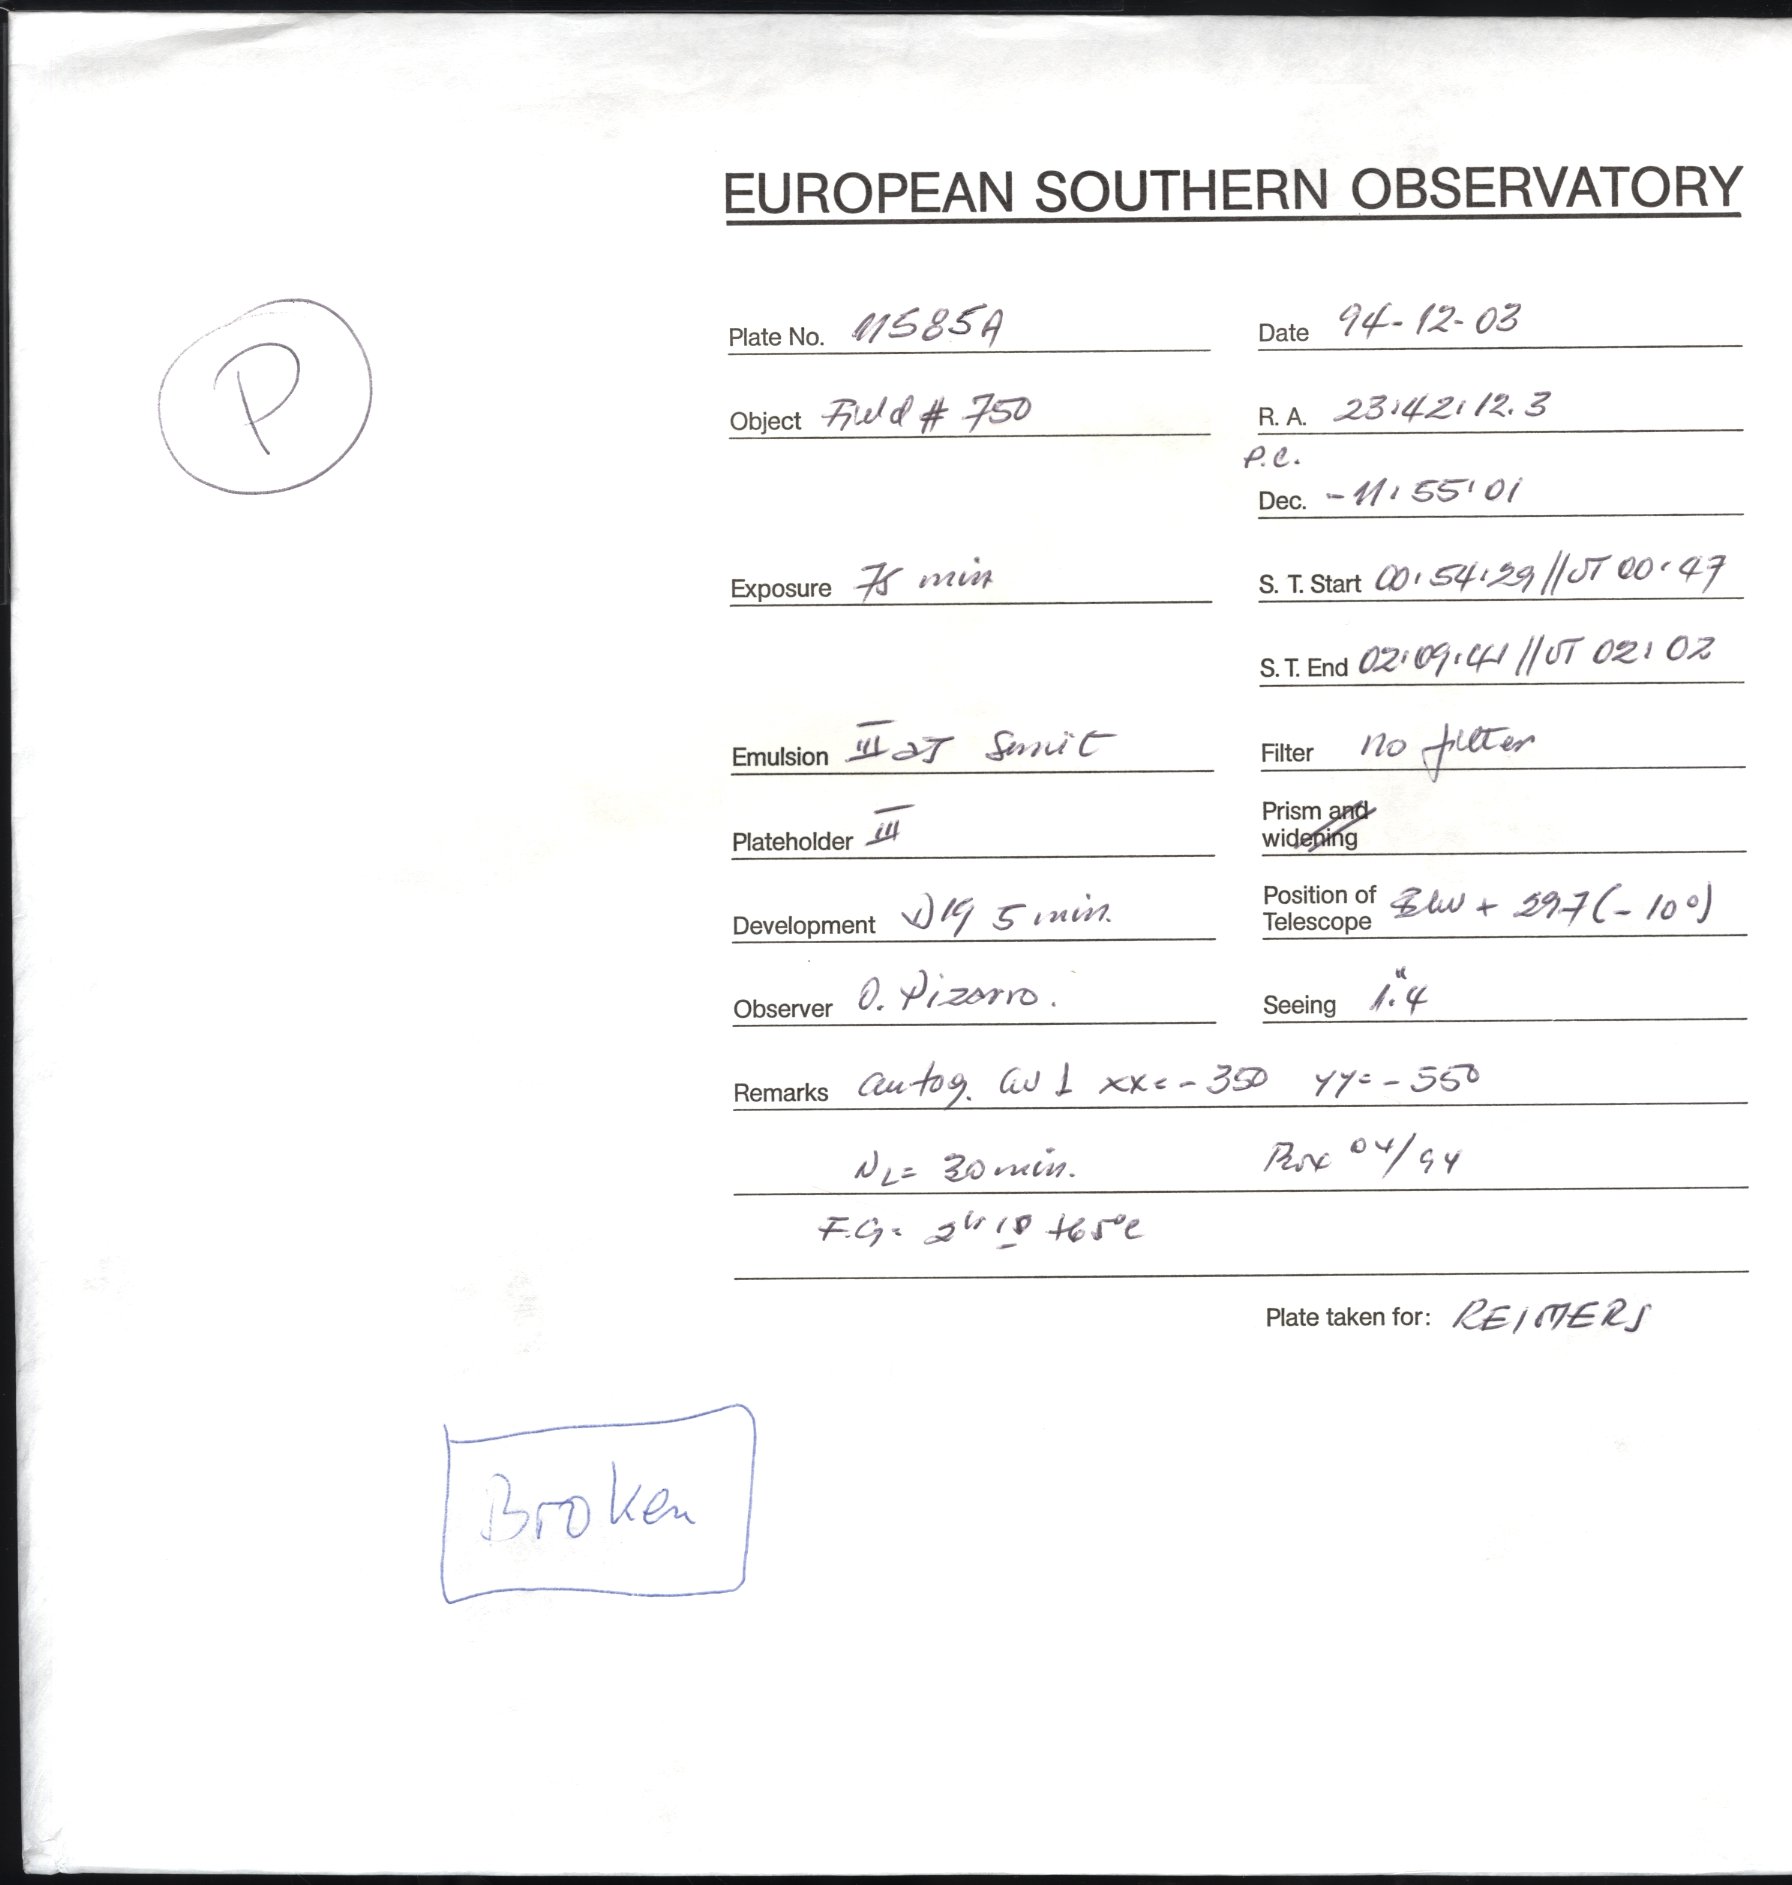 EUROPEAN SOUTHERN OBSERVATORY
P
Plate No. 11585A
Date 94-12-03
Object Field # 750
R. A. 23:42:12.3
P.C.
Dec. -11:55:01
Exposure 75 min
S. T. Start 00:54:29//UT 00:47
S. T. End 02:09:41//UT 02:02
Emulsion III aJ
Filter no filter
Plateholder III
Prism and
widening
Development D19 5 min.
Position of
Telescope + 297 (-10°)
Observer O. Pizarro.
Seeing 1".4
Remarks autog. xx=-350 yy=-550
NL= 30 min. Box 04/94
F.G= +65°C
Plate taken for: REIMERS
Broken